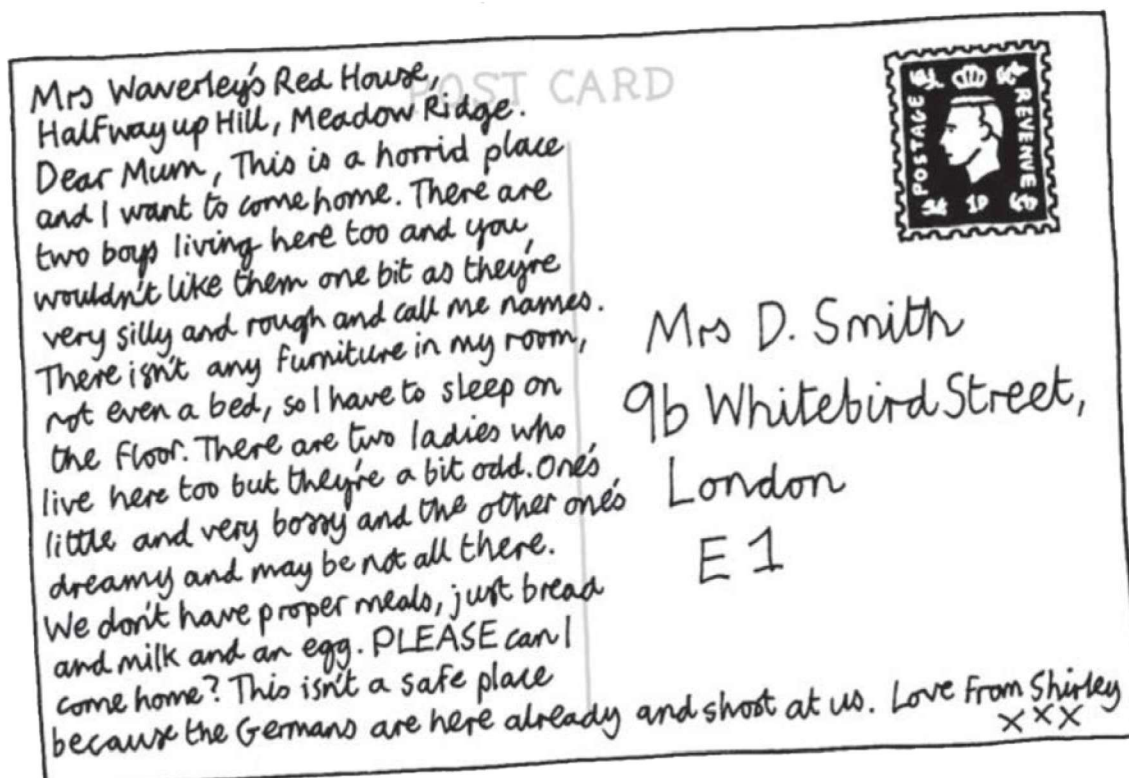 POST CARD
Mrs Waverley's Red House,
Halfway up Hill, Meadow Ridge.
Dear Mum, This is a horrid place
and I want to come home. There are
two boys living here too and you
wouldn't like them one bit as they're
very silly and rough and call me names.
There isn't any furniture in my room,
not even a bed, so I have to sleep on
the floor. There are two ladies who
live here too but they're a bit odd. One's
little and very bossy and the other one's
dreamy and may be not all there.
We don't have proper meals, just bread
and milk and an egg. PLEASE can I
come home? This isn't a safe place
because the Germans are here already and shoot at us. Love from Shirley
xxx
POSTAGE
REVENUE
1D
Mrs D. Smith
9b Whitebird Street,
London
E1